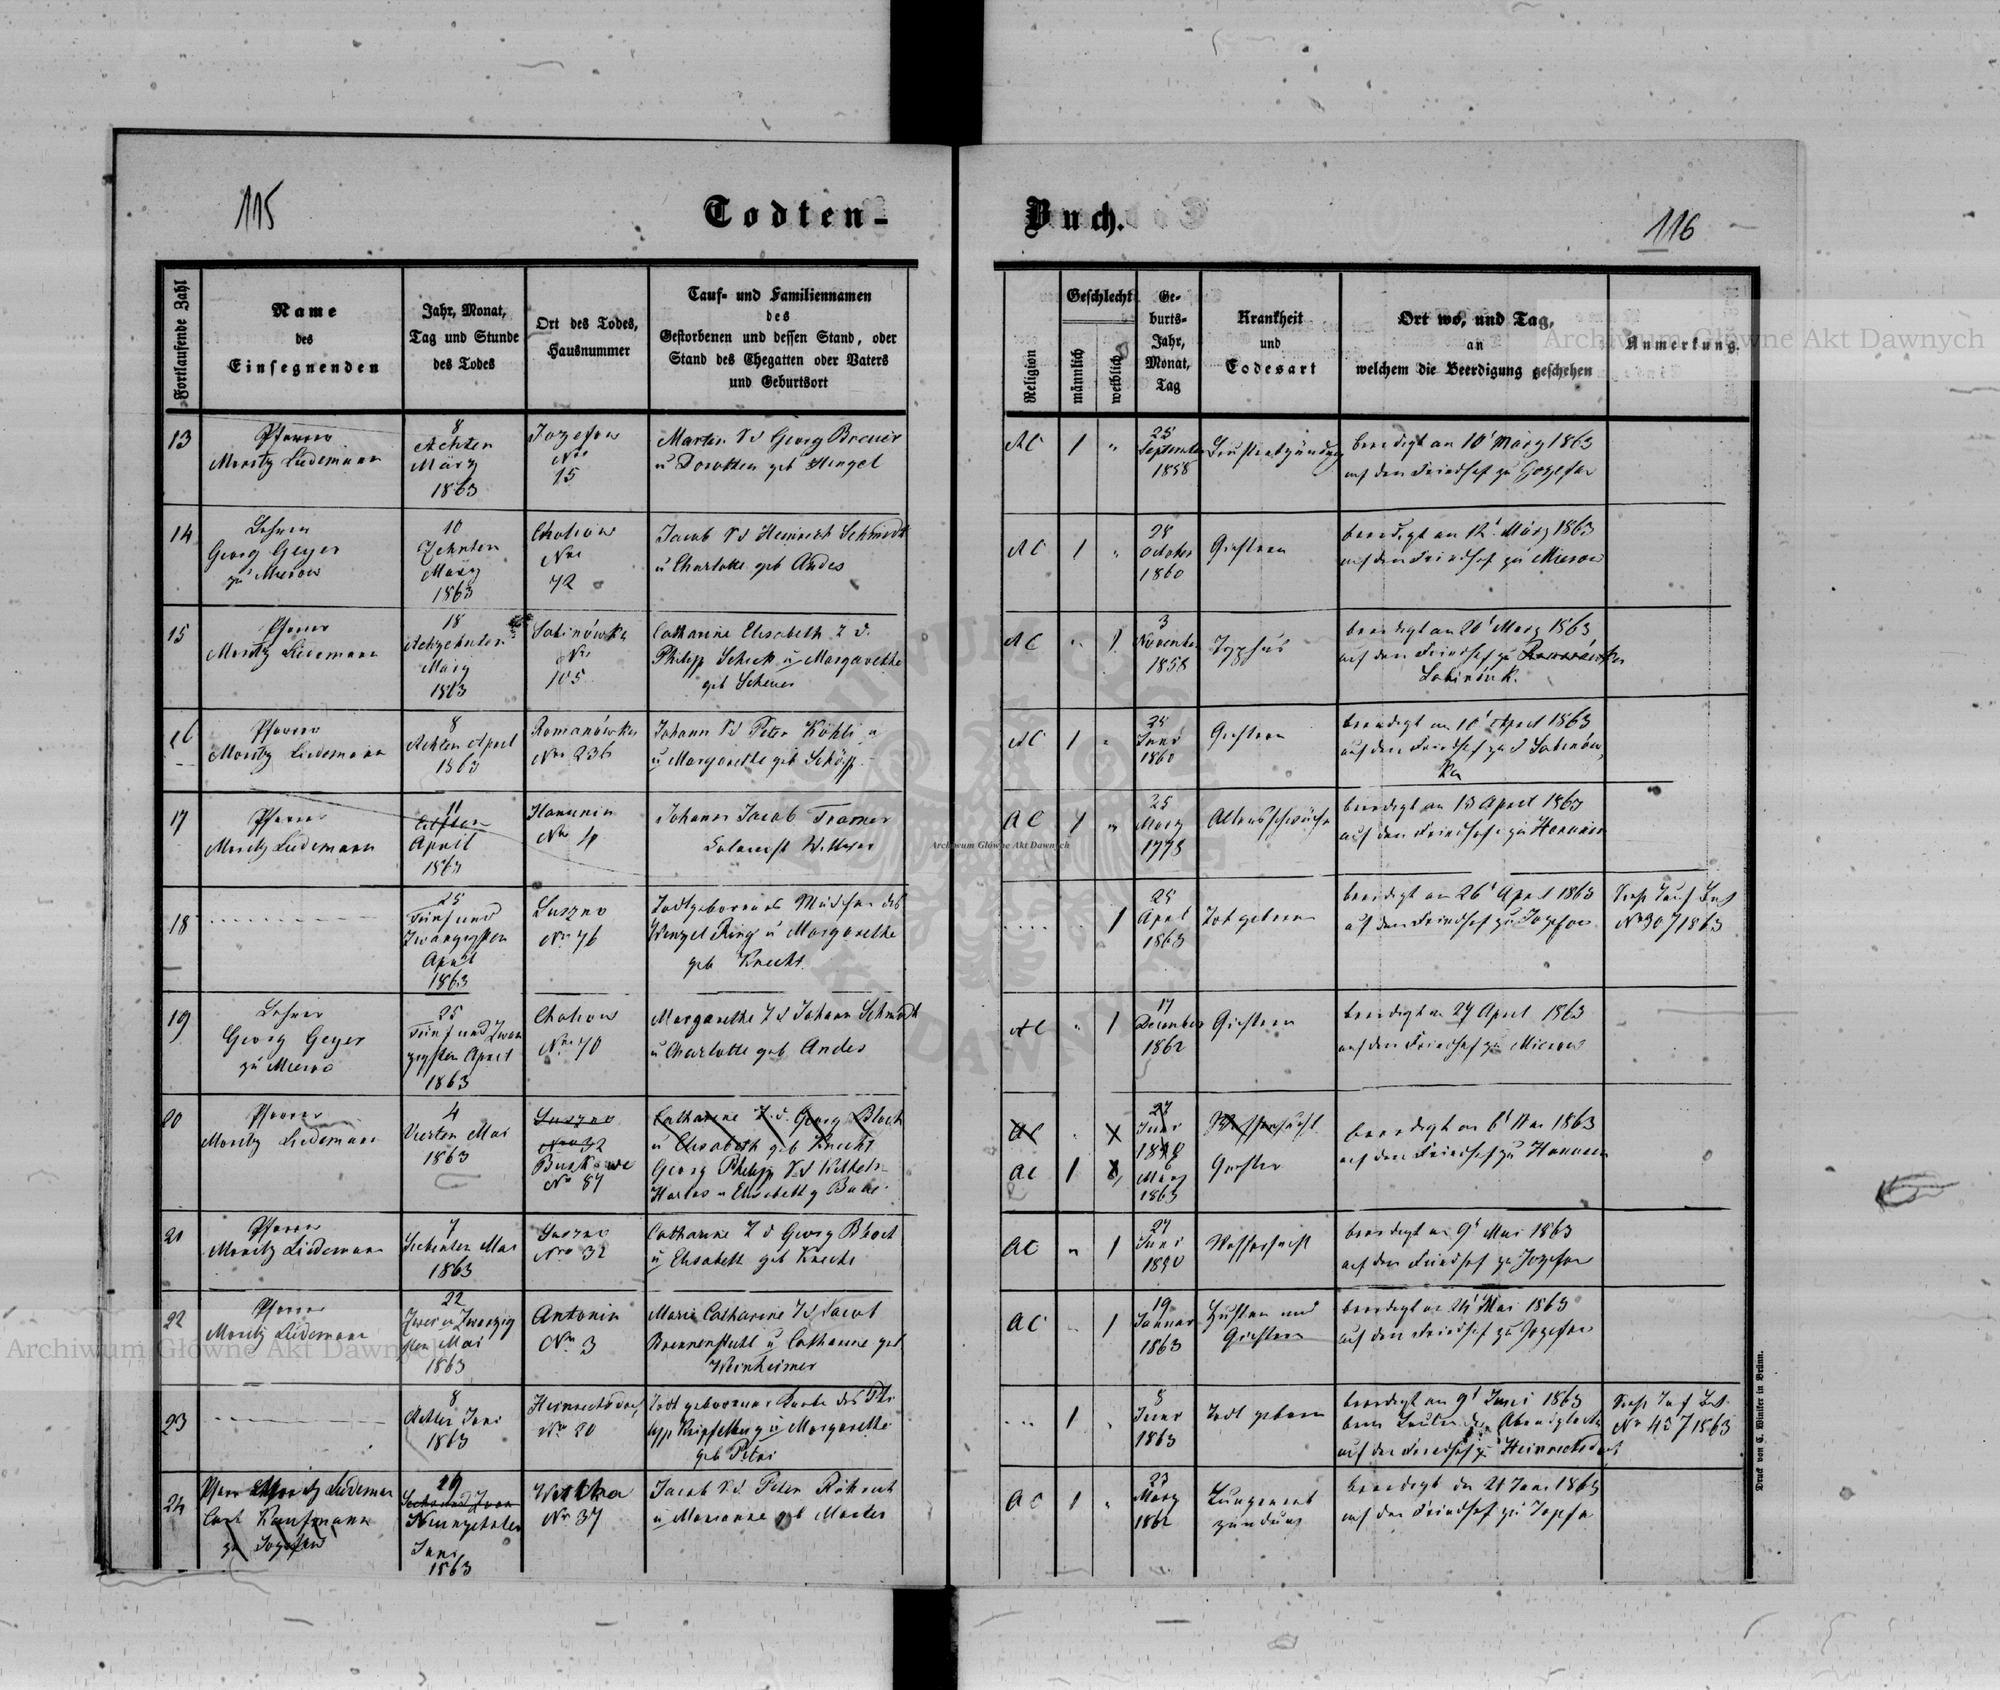 115
Todten-
Buch.
116
Fortlaufende Zahl
Name
des
Einsegnenden
Jahr, Monat,
Tag und Stunde
des Todes
Ort des Todes,
Hausnummer
Tauf- und Familiennamen
des
Gestorbenen und dessen Stand, oder
Stand des Ehegatten oder Vaters
und Geburtsort
Religion
Geschlecht
männlich
weiblich
Ge-
burts-
Jahr,
Monat,
Tag
Krankheit
und
Todesart
Ort wo, und Tag,
an
welchem die Beerdigung geschehen
Anmerkung.
13
Pfarrer
Moritz Liedemann
8
Achten
März
1863
Jozefow
Nro
15
Martin S d Georg Breuer
u Dorothea geb Hingel
AC
1
25
September
1858
beerdigt am 10t März 1863
auf dem Friedhof zu Jozefow
14
Lehrer
Georg Geyer
zu Mierow
10
Zehnten
März
1863
Chotiow
Nro
72
Jacob S d Heinrich Schmidt
u Charlotte geb Andes
AC
1
28
October
1860
beerdigt am 12t März 1863
auf dem Friedhof zu Mierow
15
Pfarrer
Moritz Liedemann
18
Achtzehnten
März
1863
Sabinówka
Nro
105
Catharine Elisabeth T d.
Philipp Schick u Margarethe
geb Scheuer
AC
1
3
November
1858
Typhus
beerdigt am 20t März 1863
auf dem Friedhof zu Romanówka
Sabinówk.
16
Pfarrer
Moritz Liedemann
8
Achten April
1863
Romanówka
Nro 236
Johann S d Peter Köhle u
u Margarethe geb Schöpp
AC
1
25
Juni
1860
beerdigt am 10t April 1863
auf dem Friedhof zu Sabinów
ka
17
Pfarrer
Moritz Liedemann
11
Elften
April
1863
Hanunin
Nro 4
Johann Jacob Tramer
Colonist Wittwer
AC
1
25
März
1778
Altersschwäche
beerdigt am 13 April 1863
auf dem Friedhofe zu Hanunin
18
25
Fünf und
Zwanzigsten
April
1863
Suszno
Nro 76
Todtgebornes Mädchen des
Wenzel Ring u Margarethe
geb Knecht
1
25
April
1863
Todtgeboren
beerdigt am 26t April 1863
auf dem Friedhof zu Jozefow
Siehe Tauf Buch
No 30 / 1863
19
Lehrer
Georg Geyer
zu Mierow
25
Fünf und Zwan
zigsten April
1863
Chotiow
Nro 70
Margarethe T d Johann Schmidt
u Charlotte geb Andes
AC
1
17
December
1862
beerdigt am 27 April 1863
auf dem Friedhof zu Mierow
20
Pfarrer
Moritz Liedemann
4
Vierten Mai
1863
Suszno
Nro 32
No 87
Catharine T. d. Georg Bloch
u Elisabeth geb Knecht
Georg Philipp S d Wilhelm
Harlos u Elisabeth g
AC
27
Juni
Wassersucht
AC
1
6
März
1863
beerdigt am 6t Mai 1863
auf dem Friedhof zu Hanunin
21
Pfarrer
Moritz Liedemann
7
Siebenten Mai
1863
Suszno
Nro 32
Catharine T d Georg Bloch
u Elisabeth geb Knecht
AC
1
27
Juni
Wassersucht
beerdigt am 9t Mai 1863
auf dem Friedhof zu Jozefow
22
Pfarrer
Moritz Liedemann
22
Zwei u Zwanzig
sten Mai
1863
Antonin
No 3
Maria Catharine T d Jacob
Brennenstuhl u Catharine geb
Weinheimer
AC
1
19
Januar
1863
Husten und
beerdigt am 24t Mai 1863
auf dem Friedhof zu Jozefow
23
8
Achten Juni
1863
Heinrichsdorf
No 20
Todt geborener Knabe des Phi
lipp u Margarethe
geb Petri
1
8
Juni
1863
Todt geboren
beerdigt am 9t Juni 1863
beim Läuten der Abendglocke
auf dem Friedhof zu Heinrichsdorf
Siehe Tauf Buch
No 45 / 1863
24
Pfarr Moritz Liedemann
Carl Kaufmann
zu Jozefow
19
Sechs und Zwan
Neunzehnten
Juni
1863
No 37
Jacob S d Peter Röhrich
u Marianne geb Martes
AC
1
23
März
1862
Lungenent
zündung
beerdigt den 21 Juni 1863
auf dem Friedhof zu Jozefow
Druck von C. Winiker in Brünn.
Archiwum Główne Akt Dawnych
Archiwum Główne Akt Dawnych
Archiwum Główne Akt Dawnych